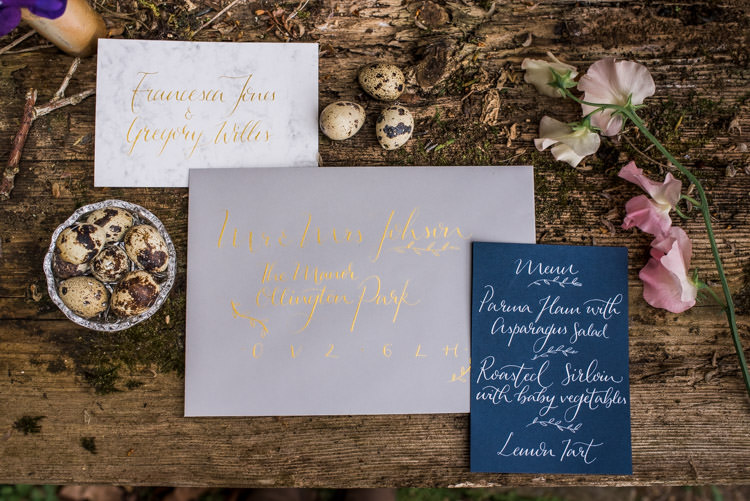 Francesca Jones
&
Gregory Willis
Mr & Mrs Johson
The Manor
Ollington Park
C V 2 6 L H
Menu
Parma Ham with
Asparagus Salad
Roasted Sirloin
with baby vegetables
Lemon Tart